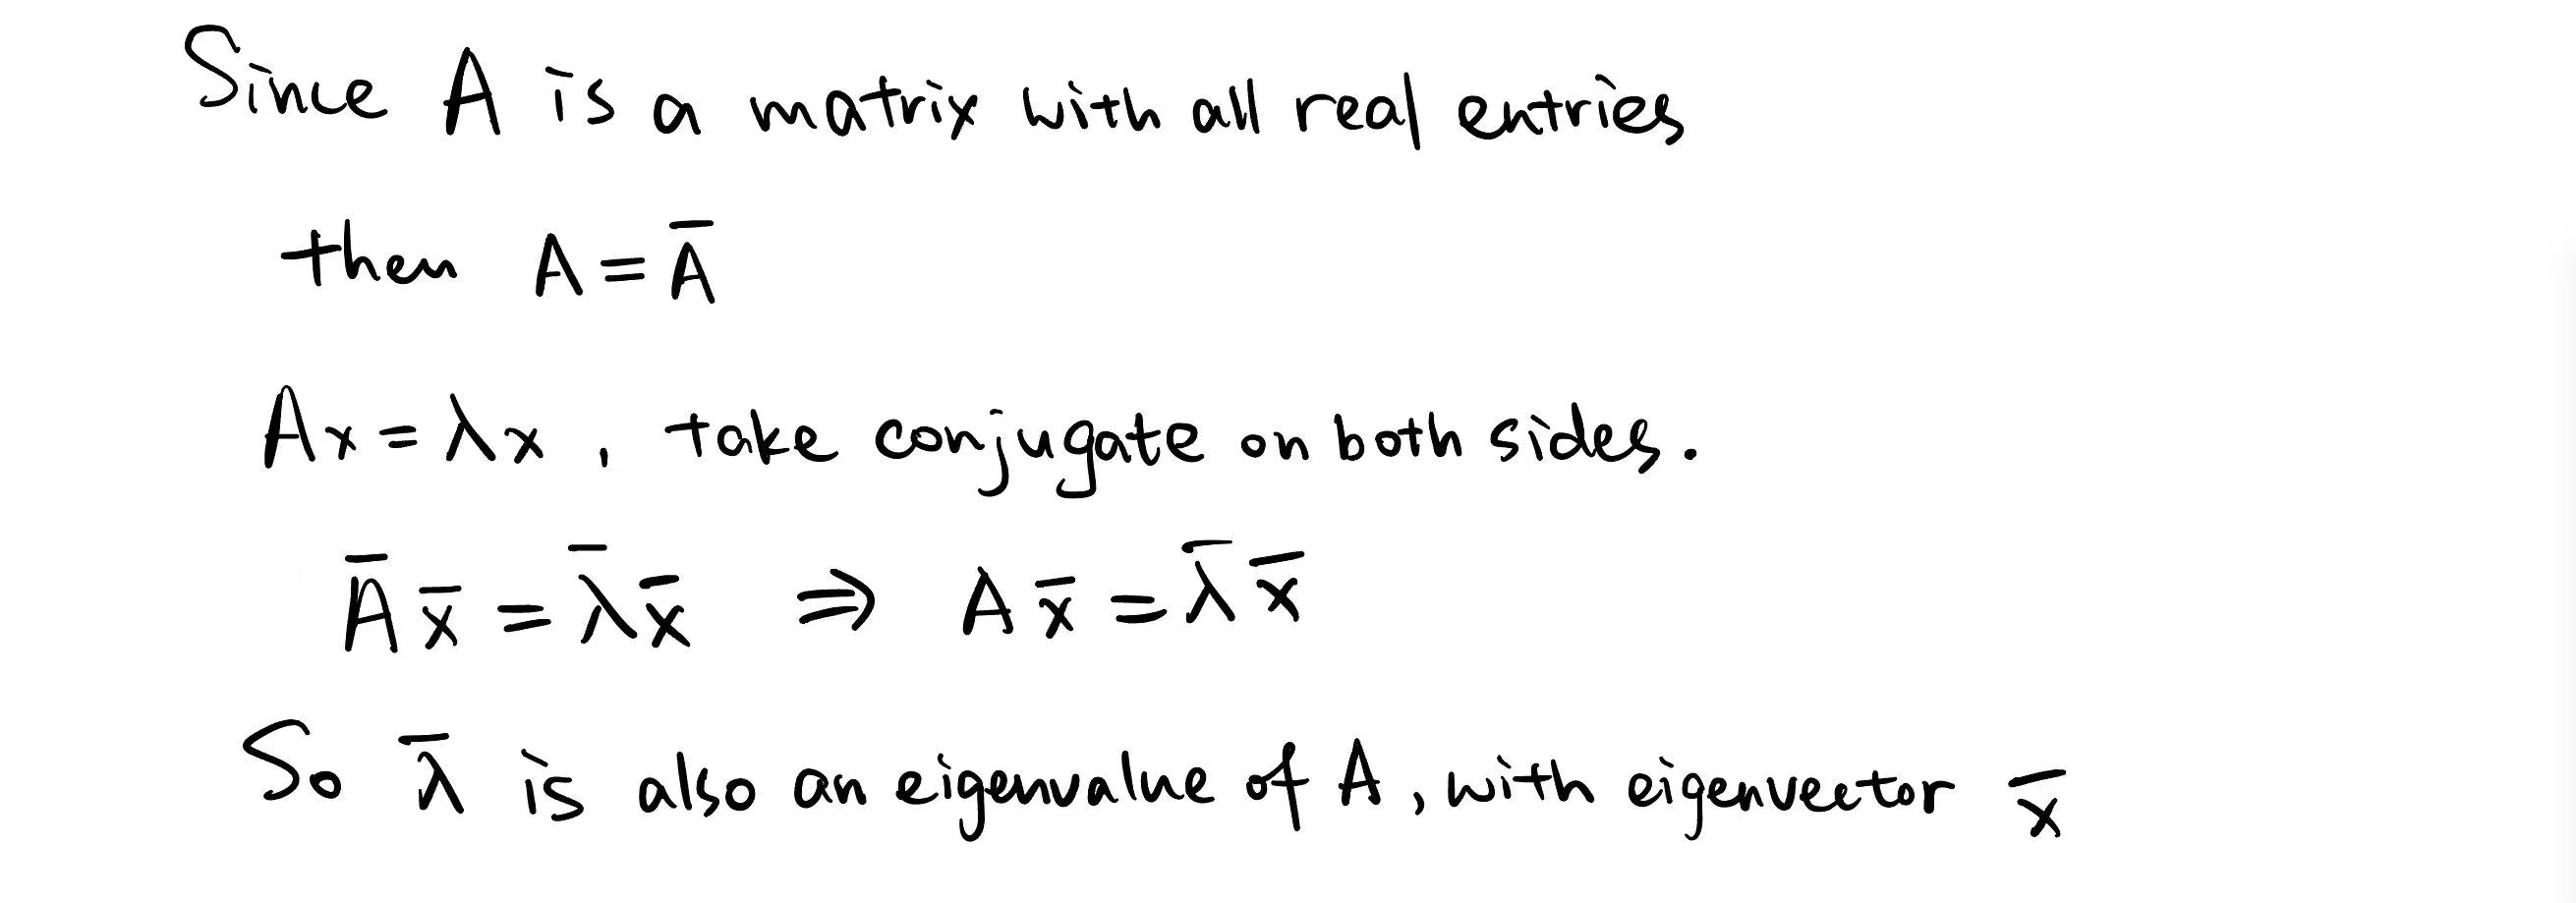 Since A is a matrix with all real entries
then A = A̅
Ax = λx , take conjugate on both sides.
A̅ x̅ = λ̅ x̅ ⇒ A x̅ = λ̅ x̅
So λ̅ is also an eigenvalue of A, with eigenvector x̅